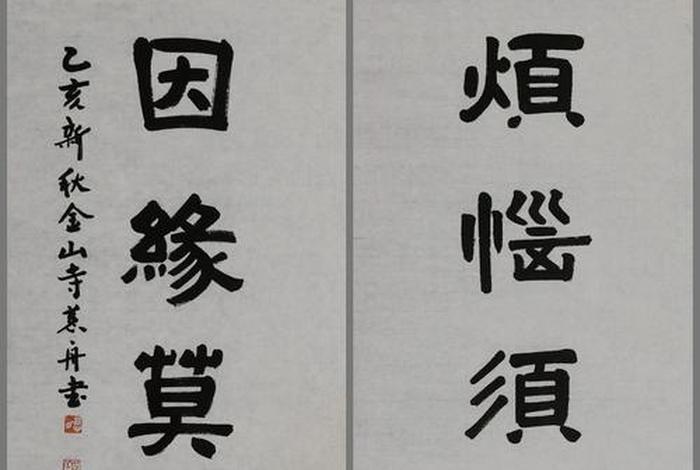 煩惱須
因緣莫
乙亥新秋金山寺慕舟書